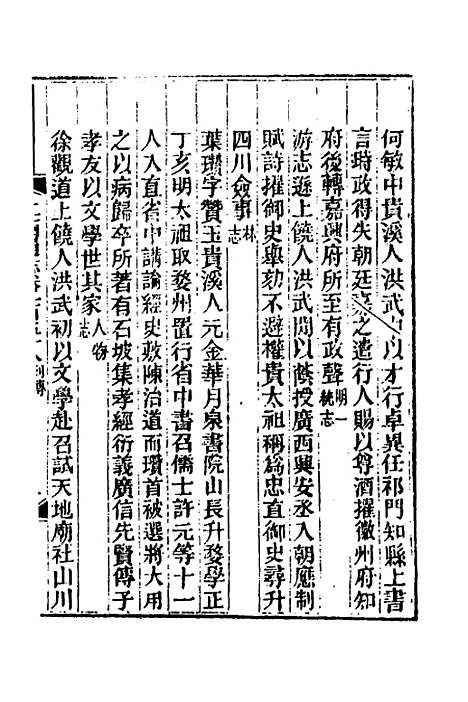 何敏中貴溪人洪武中以才行卓異任祁門知縣上書
言時政得失朝廷嘉之遣行人賜以尊酒擢徽州府知
府後轉嘉興府所至有政聲明一統志
游志遜上饒人洪武間以薦授廣西興安丞入朝應制
賦詩擢御史舉劾不避權貴太祖稱爲忠直御史尋升
四川僉事林志
葉瓚字贊玉貴溪人元金華月泉書院山長升婺學正
丁亥明太祖取婺州置行省中書召儒士許元等十一
人入直省中講論經史敷陳治道而瓚首被選將大用
之以病歸卒所著有石坡集孝經衍義廣信先賢傳子
孝友以文學世其家人物志
徐觀道上饒人洪武初以文學赴召試天地廟社山川
列傳